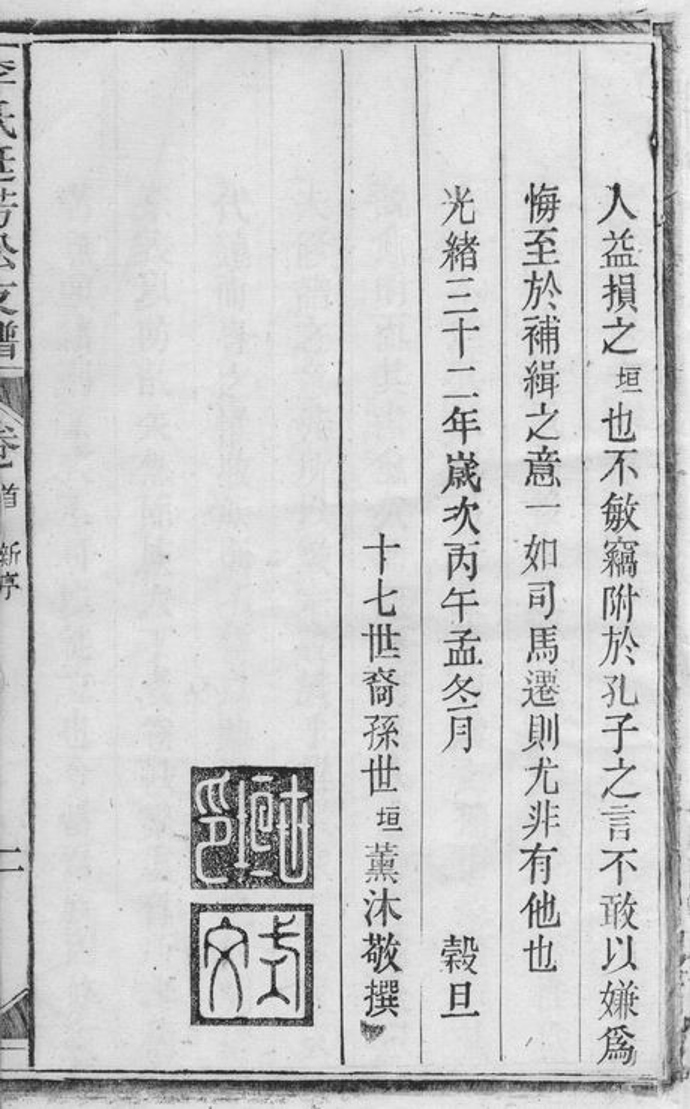 人益損之垣也不敏竊附於孔子之言不敢以嫌爲
悔至於補緝之意一如司馬遷則尤非有他也
光緒三十二年歲次丙午孟冬月 穀旦
十七世裔孫世垣薰沐敬撰
世垣印
李氏廷芳公支譜
卷首 新序
二